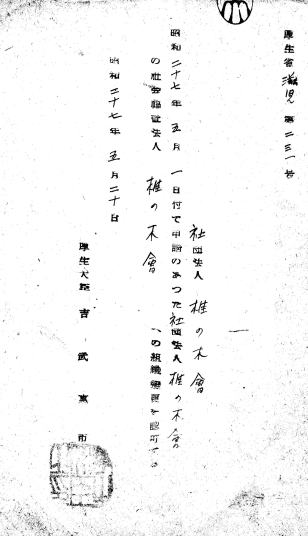 厚生省滋児第二三一号
社団法人 椎の木會
昭和二十七年五月一日付で申請のあつた社団法人椎の木會
の社会福祉法人 椎の木會 への組織變更を認可する
昭和二十七年五月二十日
厚生大臣 吉武惠市